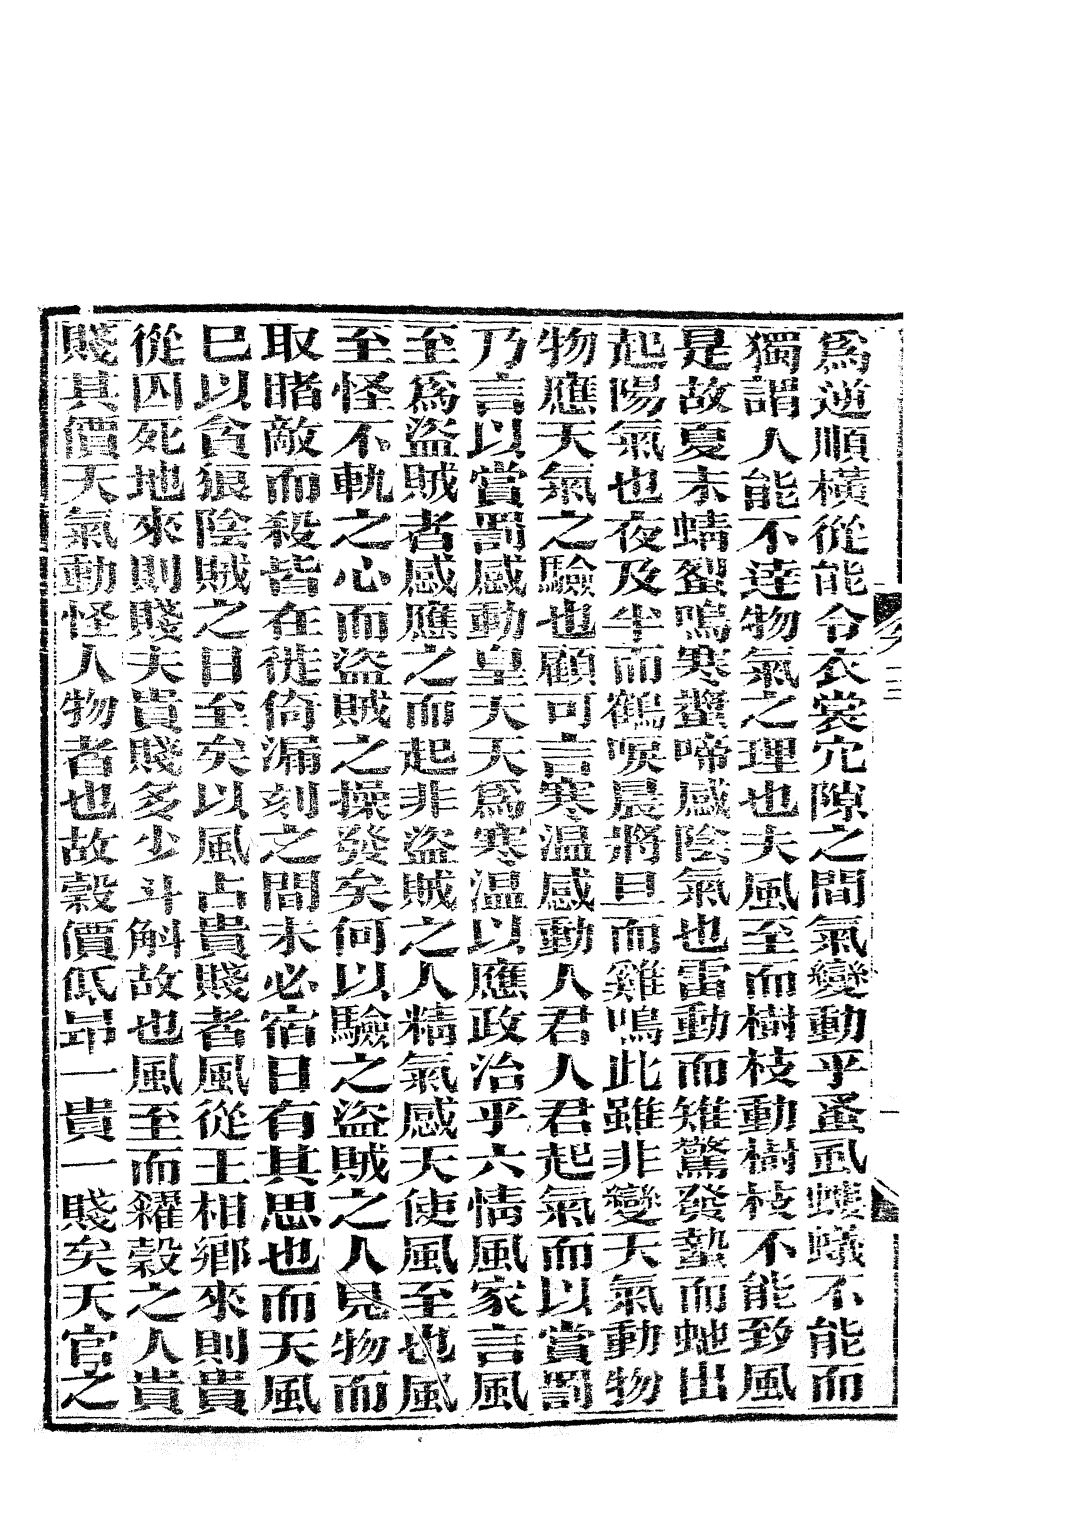 爲逆順橫從能令衣裳穴隙之間氣變動乎蚤虱螻蟻不能而
獨謂人能不達物氣之理也夫風至而樹枝動樹枝不能致風
是故夏末蜻蛚鳴寒螿啼感陰氣也雷動而雉驚發蟄而虵出
起陽氣也夜及半而鶴唳晨將旦而雞鳴此雖非變天氣動物
物應天氣之驗也顧可言寒温感動人君人君起氣而以賞罰
乃言以賞罰感動皇天天爲寒温以應政治乎六情風家言風
至爲盜賊者感應之而起非盜賊之人精氣感天使風至也風
至怪不軌之心而盜賊之操發矣何以驗之盜賊之人見物而
取睹敵而殺皆在徙倚漏刻之間未必宿日有其思也而天風
已以貪狼陰賊之日至矣以風占貴賤者風從王相鄉來則貴
從囚死地來則賤夫貴賤多少斗斛故也風至而糴穀之人貴
賤其價天氣動怪人物者也故穀價低昻一貴一賤矣天官之